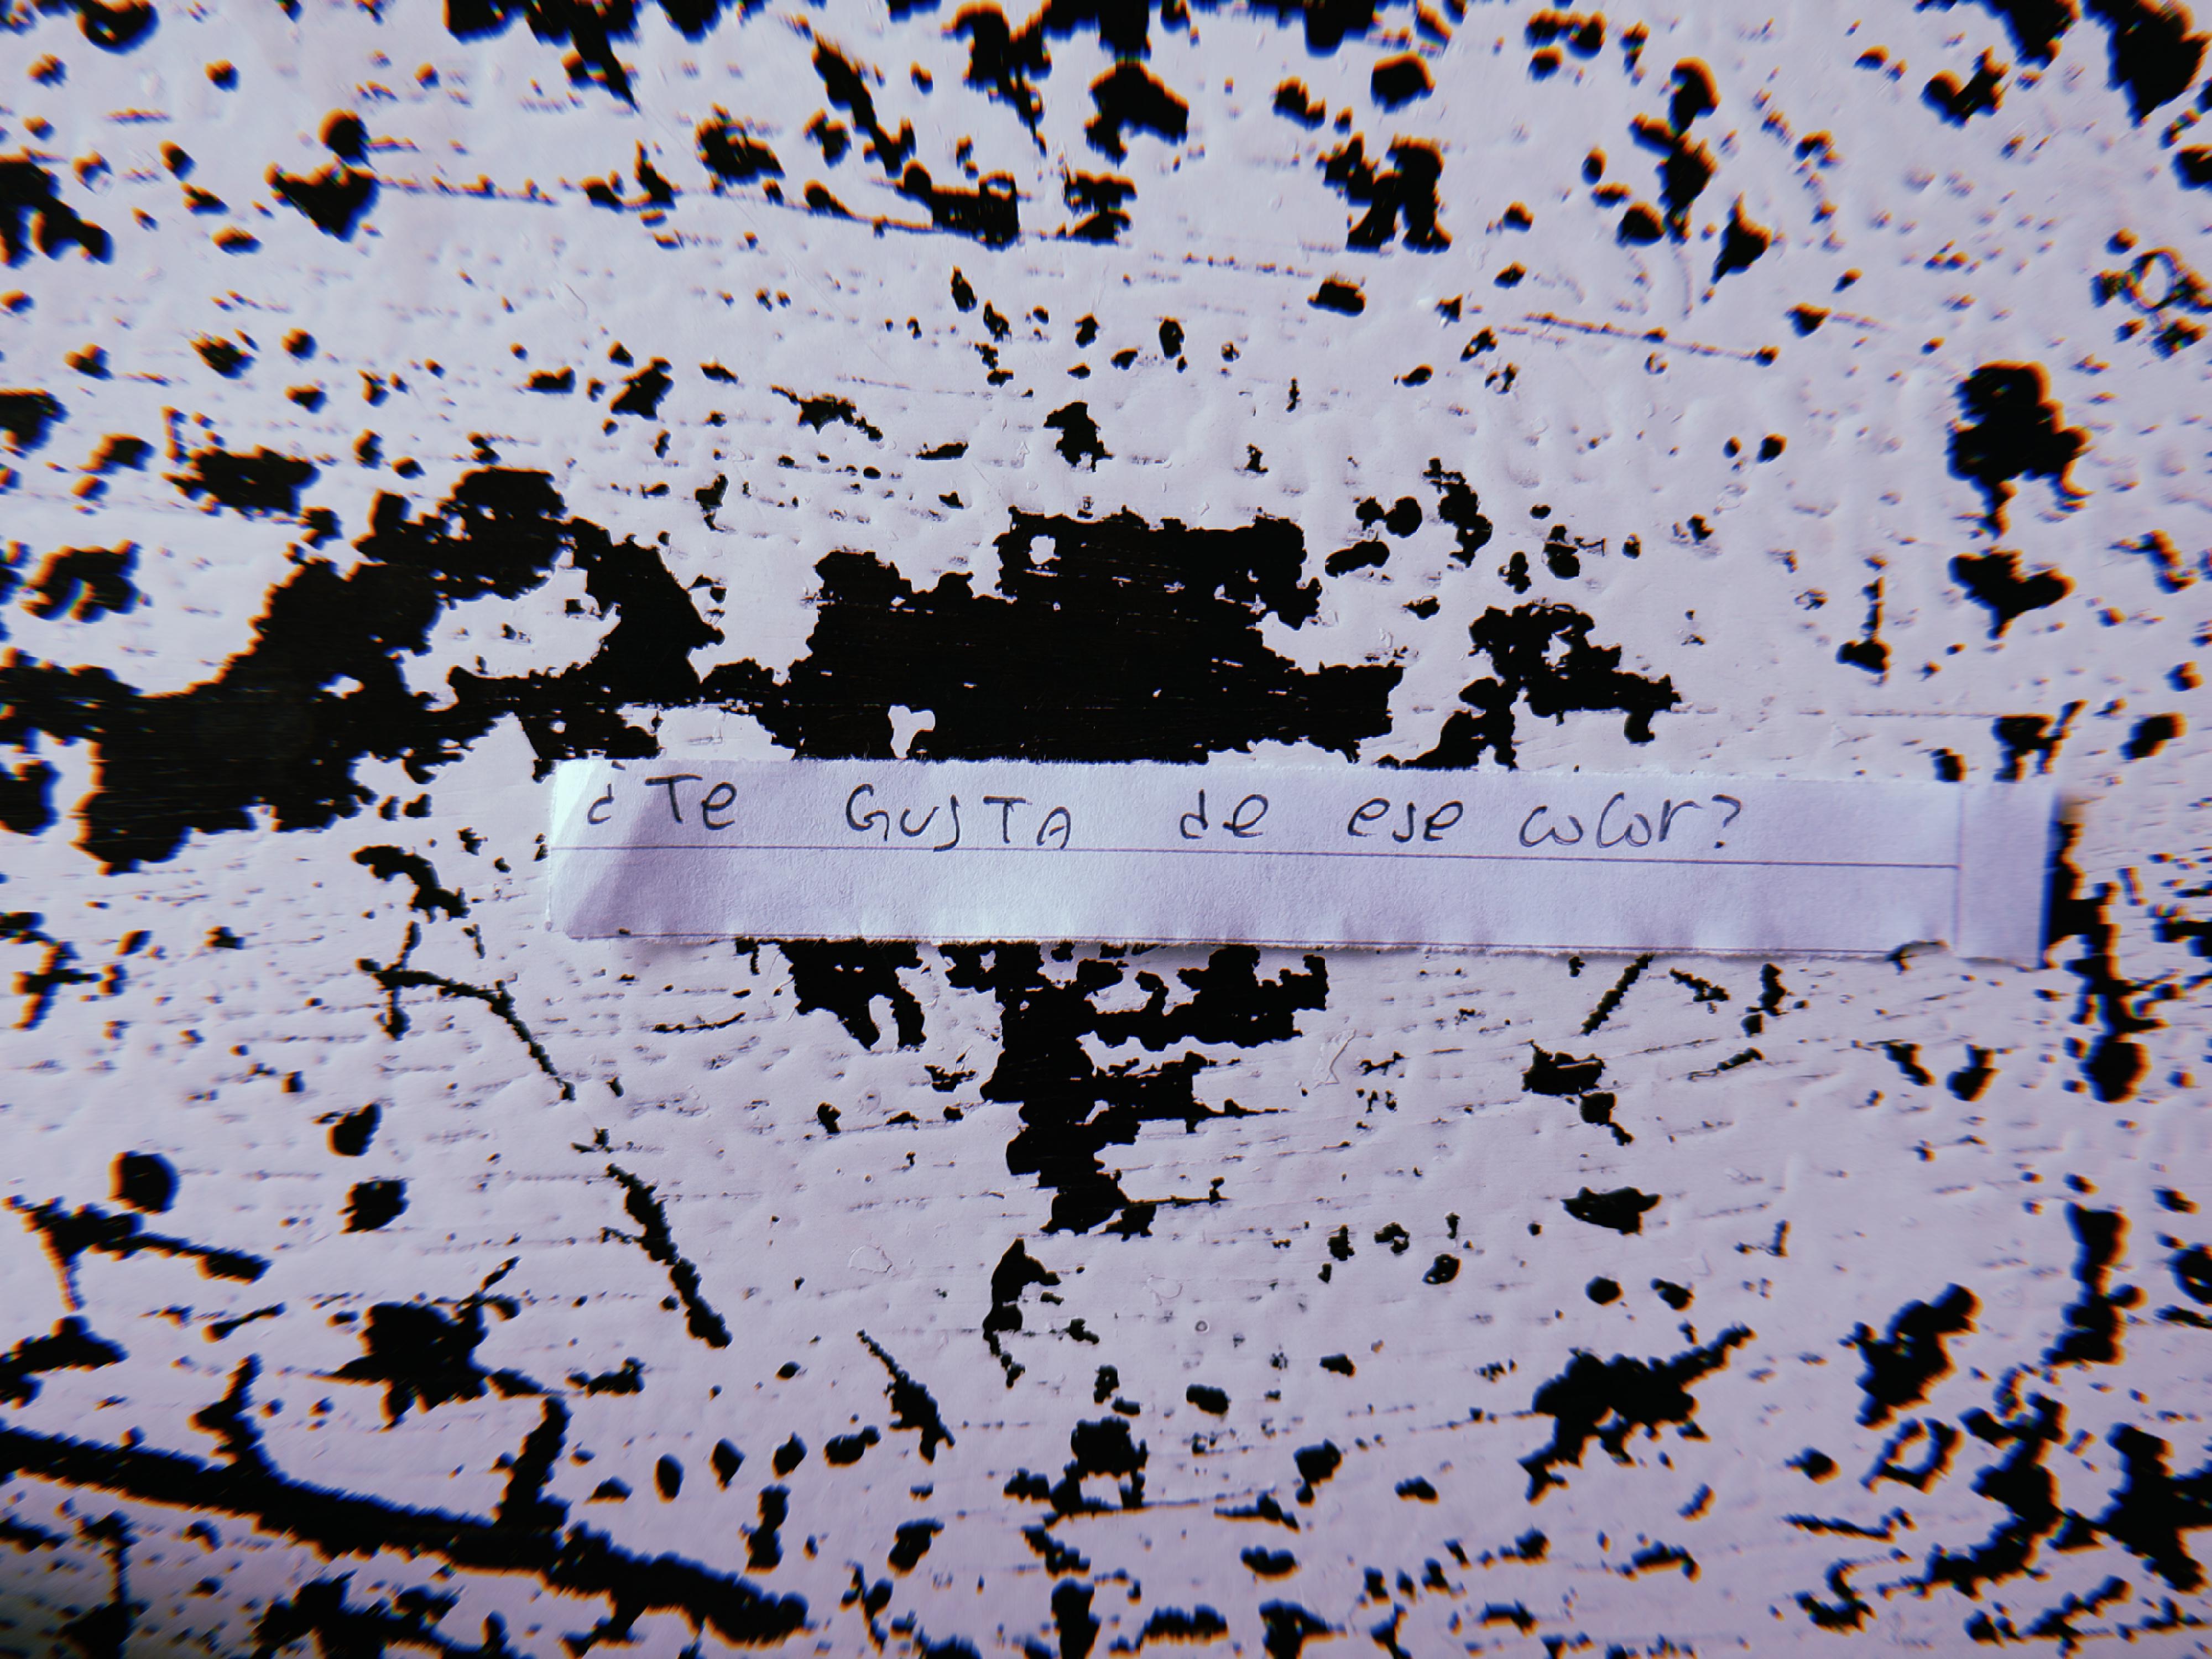 ¿Te GUSTA de ese color?